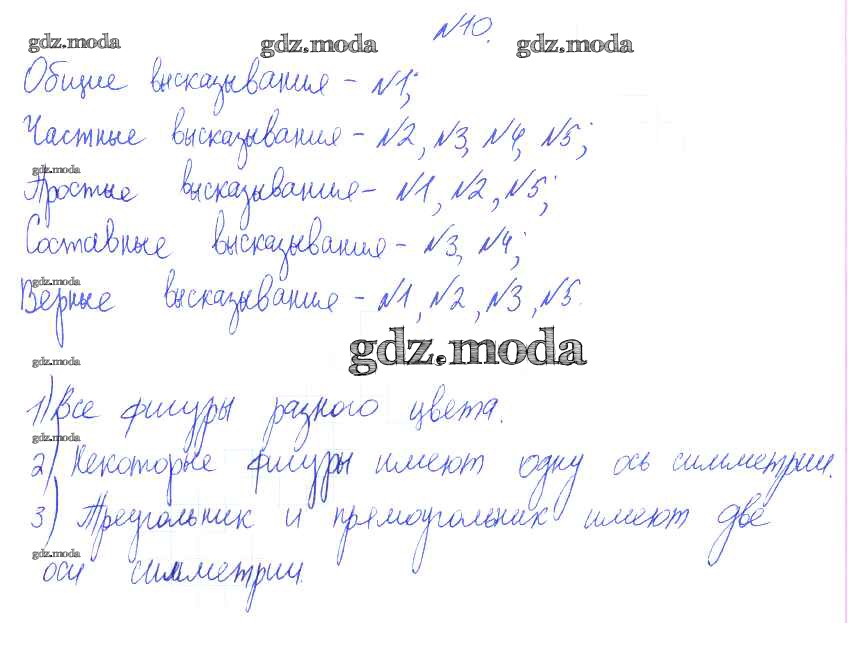 №10.
gdz.moda gdz.moda gdz.moda
Общие высказывания - №1;
Частные высказывания - №2, №3, №4, №5;
gdz.moda
Простые высказывания - №1, №2, №5;
Составные высказывания - №3, №4;
gdz.moda
Верные высказывания - №1, №2, №3, №5.
gdz.moda
gdz.moda
1) Все фигуры разного цвета.
gdz.moda
2) Некоторые фигуры имеют одну ось симметрии.
3) Треугольник и прямоугольник имеют две
gdz.moda
оси симметрии.